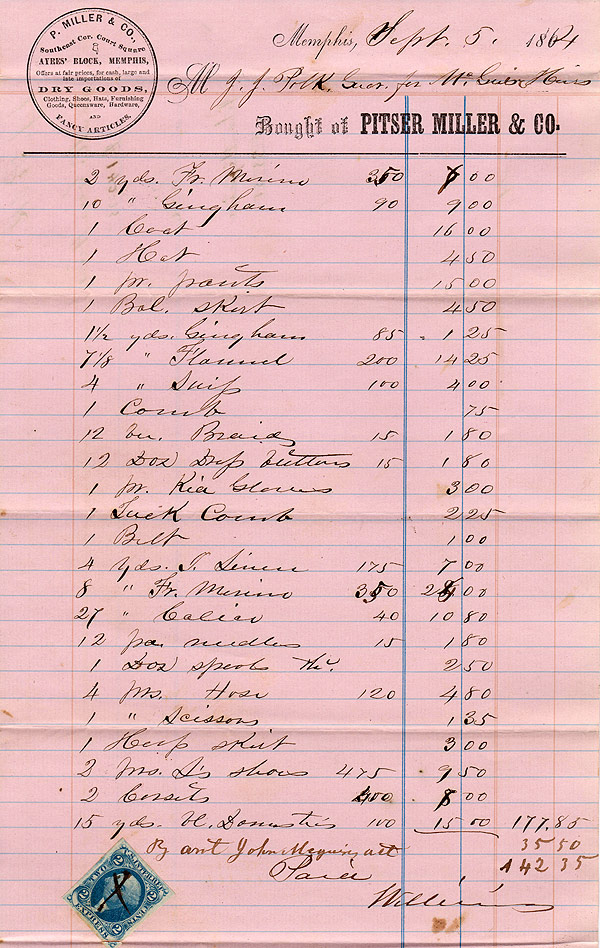 P. MILLER & CO.,
Southeast Cor. Court Square
&
AYRES' BLOCK, MEMPHIS,
Offers at fair prices, for cash, large and
late importations of
DRY GOODS,
Clothing, Shoes, Hats, Furnishing
Goods, Queensware, Hardware,
AND
FANCY ARTICLES.
Memphis, Sept. 5, 1864
M J. J. Polk, for Heirs
Bought of PITSER MILLER & CO.
2 yds. Fr. Merino 350 00
10 " Gingham 90 9 00
1 Coat 16 00
1 Hat 4 50
1 pr. pants 15 00
1 Bal. skirt 4 50
1 1/2 yds. Gingham 85 1 25
7 1/8 " Flannel 200 14 25
4 " 100 4 00
1 Comb 75
12 Braid 15 1 80
12 Doz Dress buttons 15 1 80
1 pr. Kid Gloves 3 00
1 Tuck Comb 2 25
1 Belt 1 00
4 yds. I. Linen 175 7 00
8 " Fr. Merino 350 00
27 " Calico 40 10 80
12 pa needles 15 1 80
1 Doz spools 2 50
4 prs. Hose 120 4 80
1 " Scissors 1 35
1 Hoop skirt 3 00
2 prs. shoes 475 9 50
2 Corsets 400 8 00
15 yds. Bl. Domestic 100 15 00 177,85
By amt John act 35 50
Paid 142 35
U.S. INTER. REV.
2
TWO CENTS
EXPRESS
X